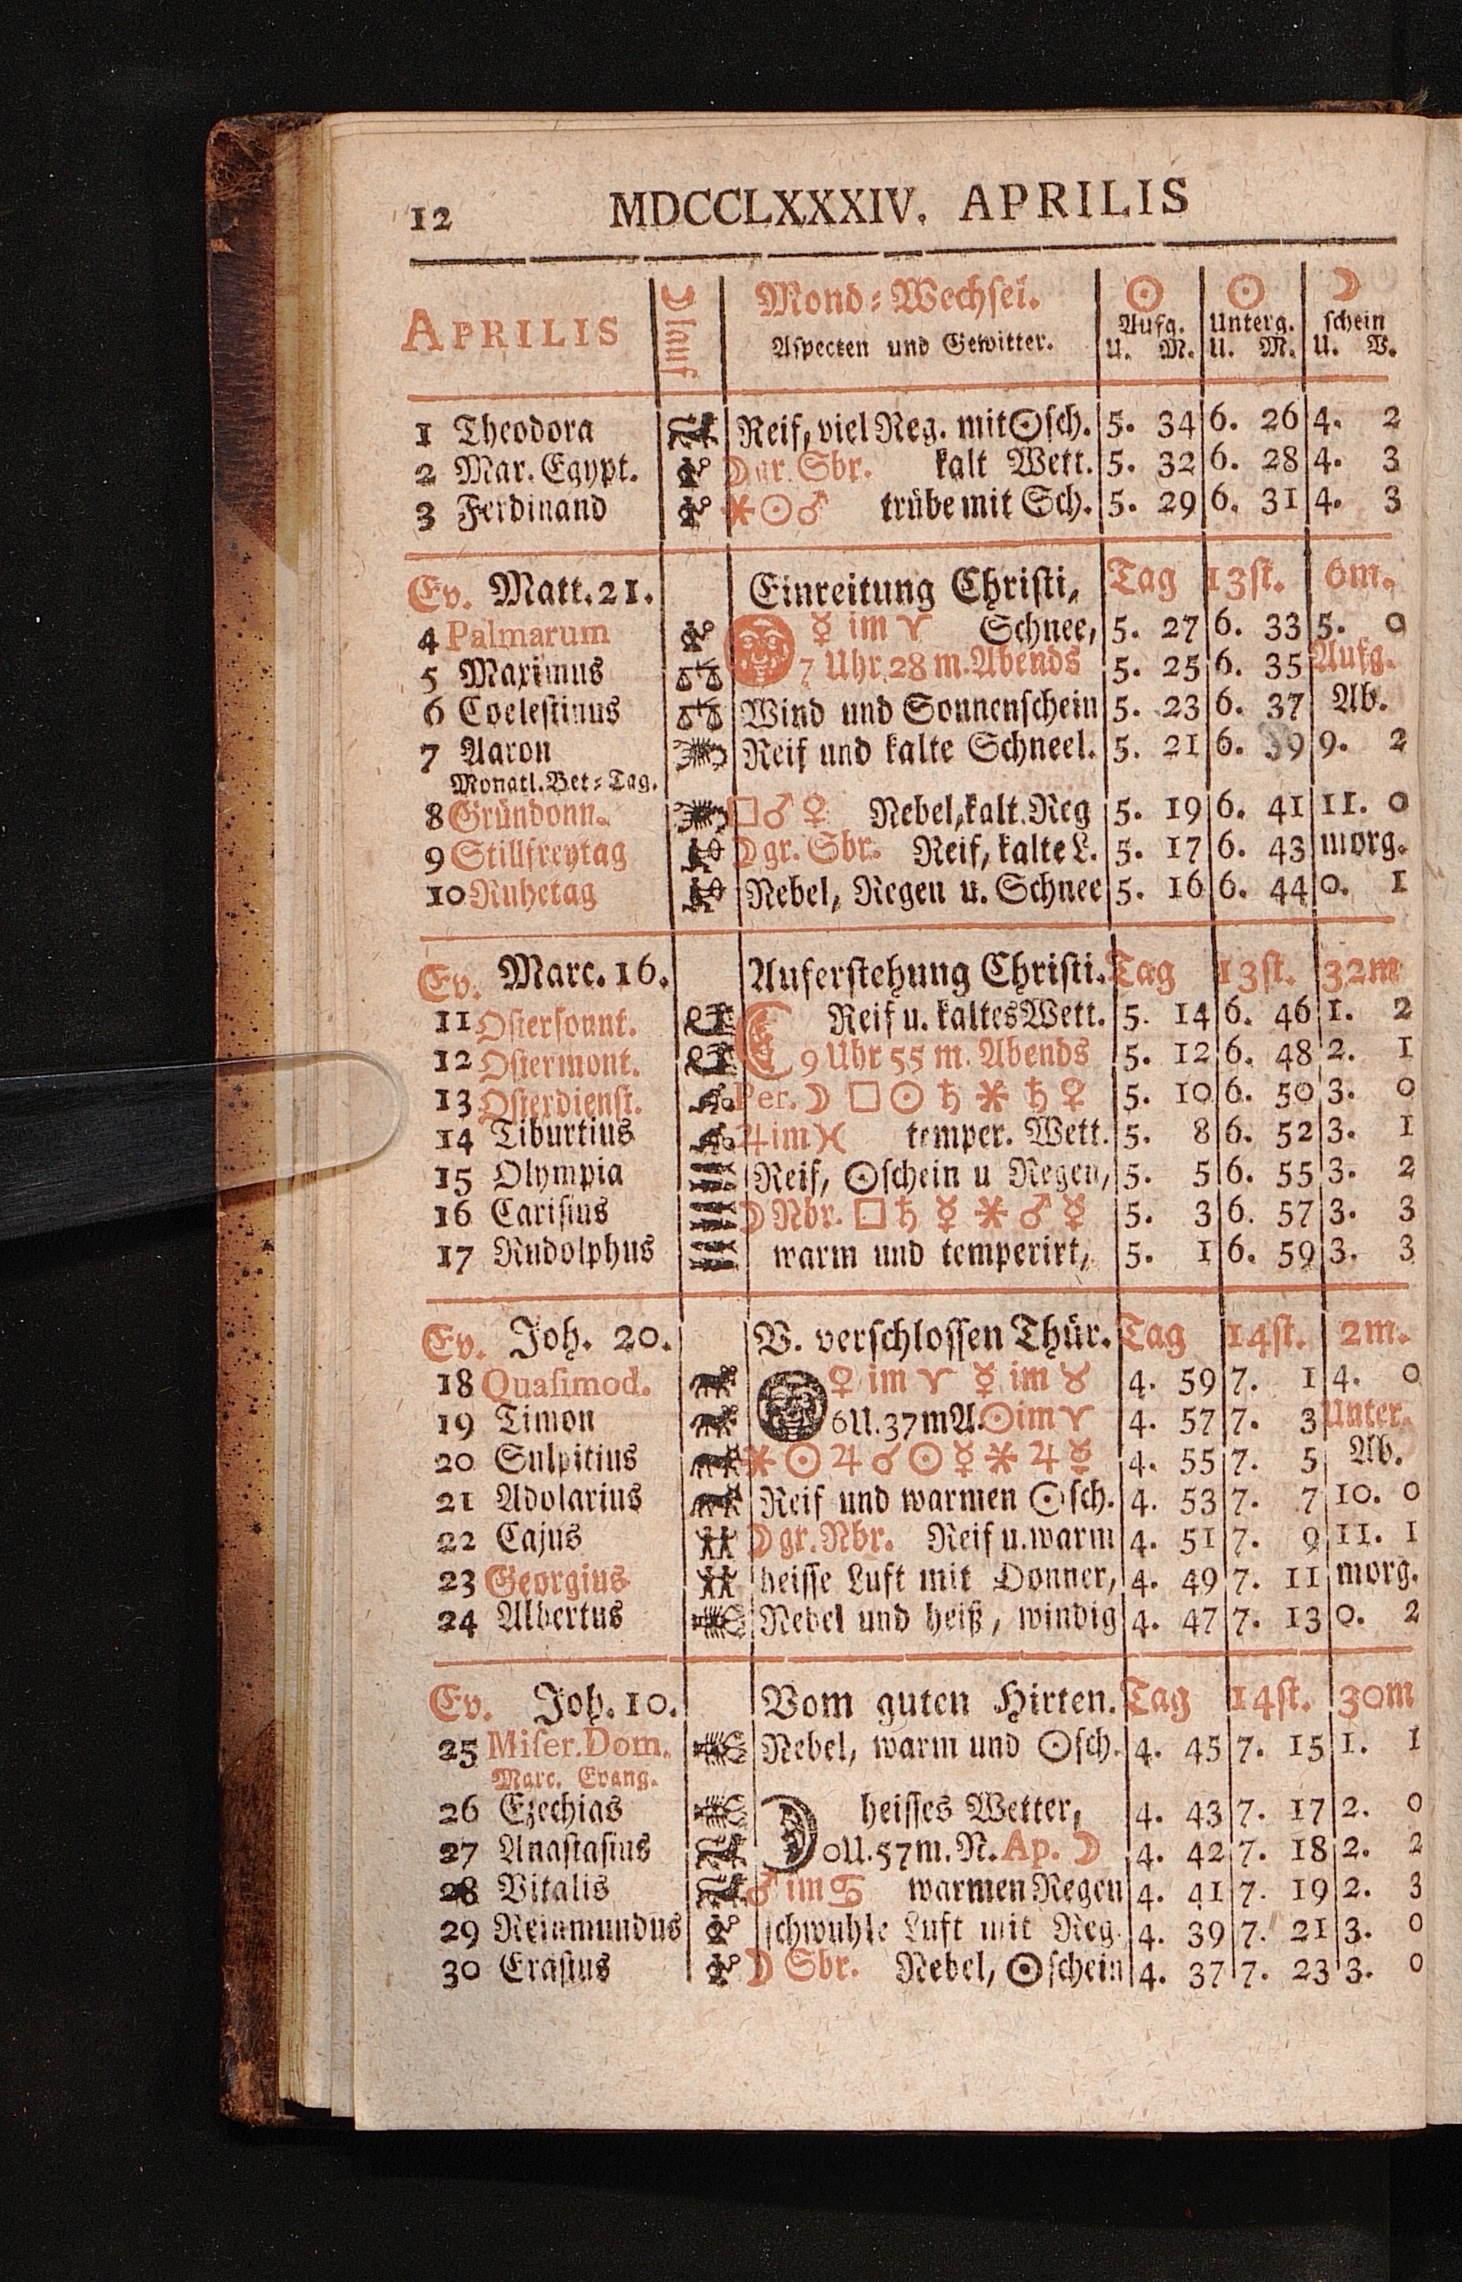 12 MDCCLXXXIV. APRILIS
APRILIS ☽lauf Mond⸗Wechsel. ☉ ☉ ☽
Aspecten und Gewitter. Aufg. Unterg. schein
U. M. U. M. U. V.
1 Theodora Reif, viel Reg. mit☉sch. 5. 34 6. 26 4. 2
2 Mar. Egypt. ☽gr. Sbr. kalt Wett. 5. 32 6. 28 4. 3
3 Ferdinand ⚹☉♂ trübe mit Sch. 5. 29 6. 31 4. 3
Ev. Matt. 21. Einreitung Christi, Tag 13st. 6m.
4 Palmarum ☿ im ♈ Schnee, 5. 27 6. 33 5. 0
5 Maximus 7 Uhr 28 m. Abends 5. 25 6. 35 Aufg.
6 Coelestinus Wind und Sonnenschein 5. 23 6. 37 Ab.
7 Aaron Reif und kalte Schneel. 5. 21 6. 39 9. 2
Monatl. Bet⸗Tag.
8 Gründonn. □♂♀ Nebel, kalt. Reg 5. 19 6. 41 11. 0
9 Stillfreytag ☽gr. Sbr. Reif, kalte L. 5. 17 6. 43 morg.
10 Ruhetag Nebel, Regen u. Schnee 5. 16 6. 44 0. 1
Ev. Marc. 16. Auferstehung Christi. Tag 13st. 32m
11 Ostersonnt. Reif u. kaltes Wett. 5. 14 6. 46 1. 2
12 Ostermont. 9 Uhr 55 m. Abends 5. 12 6. 48 2. 1
13 Osterdienst. Per. ☽ □ ☉ ♄ ⚹ ♄ ♀ 5. 10 6. 50 3. 0
14 Tiburtius ♃ im ♓ temper. Wett. 5. 8 6. 52 3. 1
15 Olympia Reif, ☉schein u Regen, 5. 5 6. 55 3. 2
16 Carisius ☽ Nbr. □ ♄ ☿ ⚹ ♂ ☿ 5. 3 6. 57 3. 3
17 Rudolphus warm und temperirt, 5. 1 6. 59 3. 3
Ev. Joh. 20. V. verschlossen Thür. Tag 14st. 2m.
18 Quasimod. ♀ im ♈ ☿ im ♉ 4. 59 7. 1 4. 0
19 Timon 6U. 37mA. ☉im♈ 4. 57 7. 3 Unter.
20 Sulpitius ⚹ ☉ ♃ ☌ ☉ ☿ ⚹ ♃ ☿ 4. 55 7. 5 Ab.
21 Adolarius Reif und warmen ☉sch. 4. 53 7. 7 10. 0
22 Cajus ☽ gr. Nbr. Reif u. warm 4. 51 7. 9 11. 1
23 Georgius heisse Luft mit Donner, 4. 49 7. 11 morg.
24 Albertus Nebel und heiß, windig 4. 47 7. 13 0. 2
Ev. Joh. 10. Vom guten Hirten. Tag 14st. 30m
25 Miser. Dom. Nebel, warm und ☉sch. 4. 45 7. 15 1. 1
Marc. Evang.
26 Ezechias heisses Wetter, 4. 43 7. 17 2. 0
27 Anastasius 0U. 57m. N. Ap. ☽ 4. 42 7. 18 2. 2
28 Vitalis ♂ im ♋ warmen Regen 4. 41 7. 19 2. 3
29 Reinmundus schwuhle Luft mit Reg. 4. 39 7. 21 3. 0
30 Erasius ☽ Sbr. Nebel, ☉schein 4. 37 7. 23 3. 0